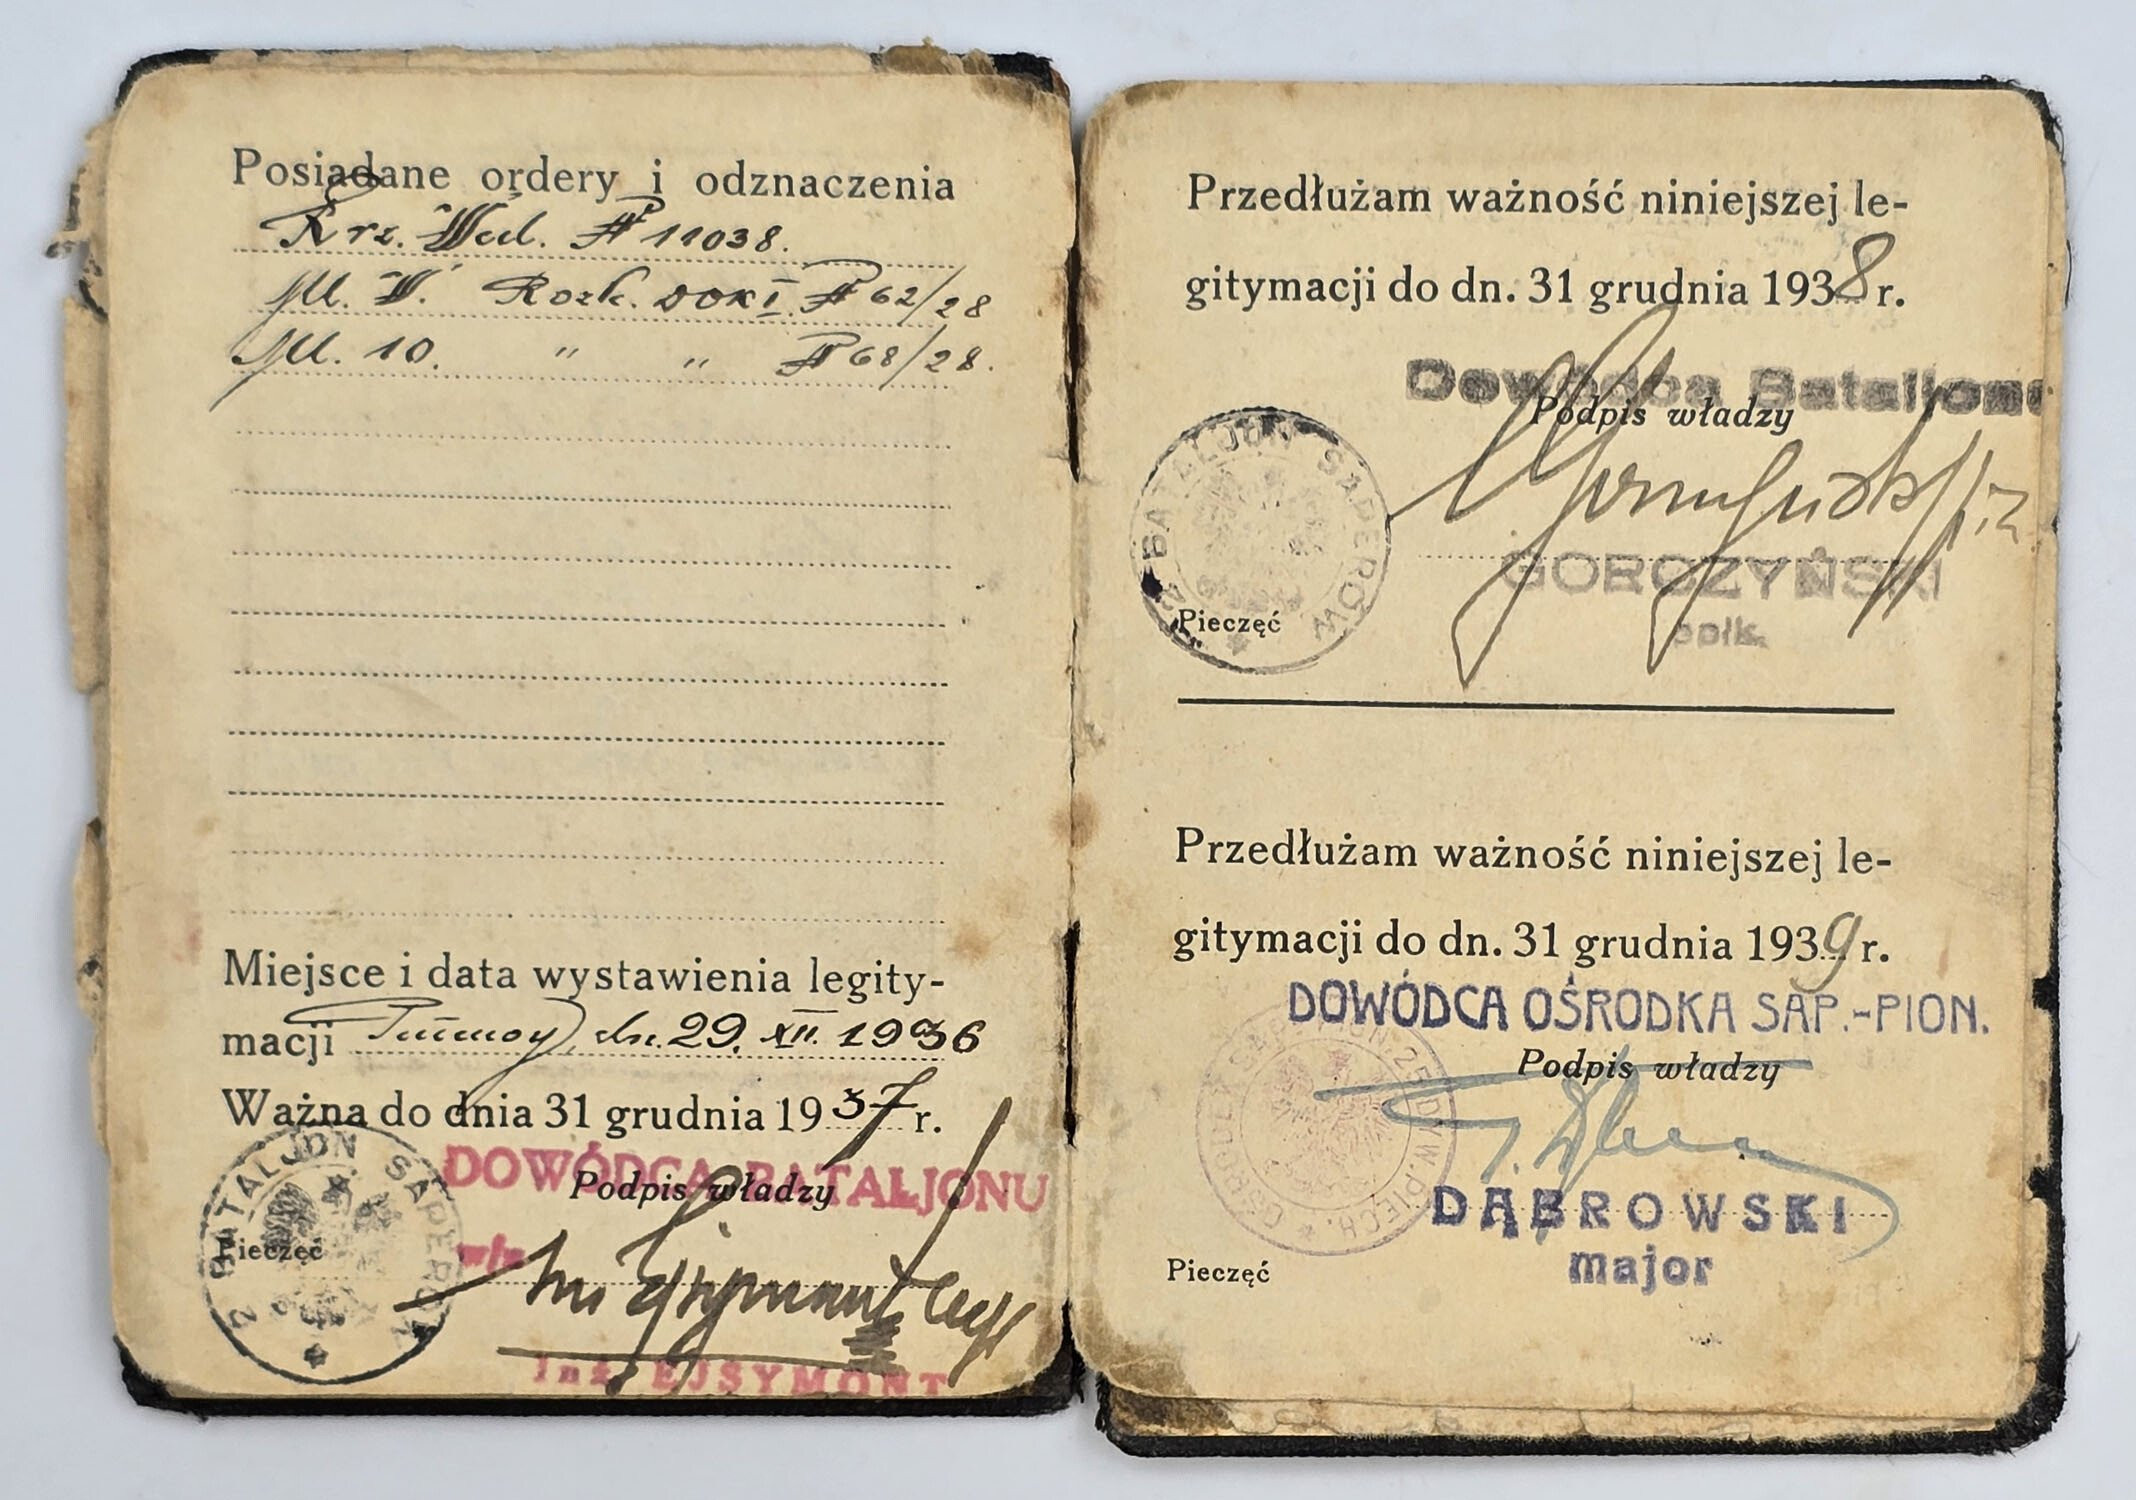 Posiadane ordery i odznaczenia
Krz. Wal. № 11038.
M. W. Rozk. DOK I. № 62/28
M. 10. " " № 68/28.
Miejsce i data wystawienia legity-
macji dn. 29. XII. 1936
Ważna do dnia 31 grudnia 1937 r.
2 BATALJON SAPERÓW
DOWÓDCA BATALJONU
Podpis władzy
Pieczęć
w/z
Inż. EJSYMONT
Przedłużam ważność niniejszej le-
gitymacji do dn. 31 grudnia 1938 r.
Dowódca Bataljonu
Podpis władzy
BATALJON SAPERÓW
GORCZYŃSKI
ppłk.
Pieczęć
Przedłużam ważność niniejszej le-
gitymacji do dn. 31 grudnia 1939 r.
DOWÓDCA OŚRODKA SAP.-PION.
Podpis władzy
DĄBROWSKI
major
Pieczęć